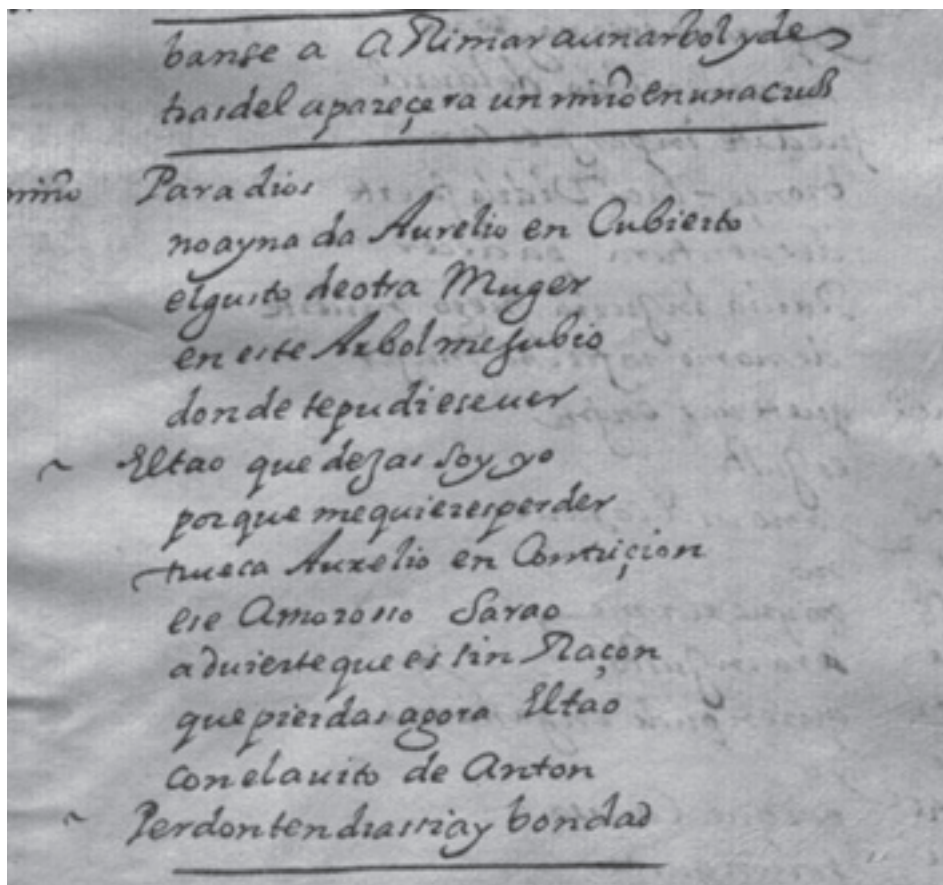 banse a aRimar a un arbol y de
tras del apareçera un niño en una cruz
niño Para dios
no ay nada Aurelio en Cubierto
el gusto de otra Muger
en este Arbol me subio
donde te pudiese uer
~ El tao que dejas soy yo
por que me quieres perder
trueca Aurelio en Contriçion
ese Amorosso Sarao
aduierte que es sin Raçon
que pierdas agora El tao
con el auito de Anton
~ Perdon tendras si ay bondad